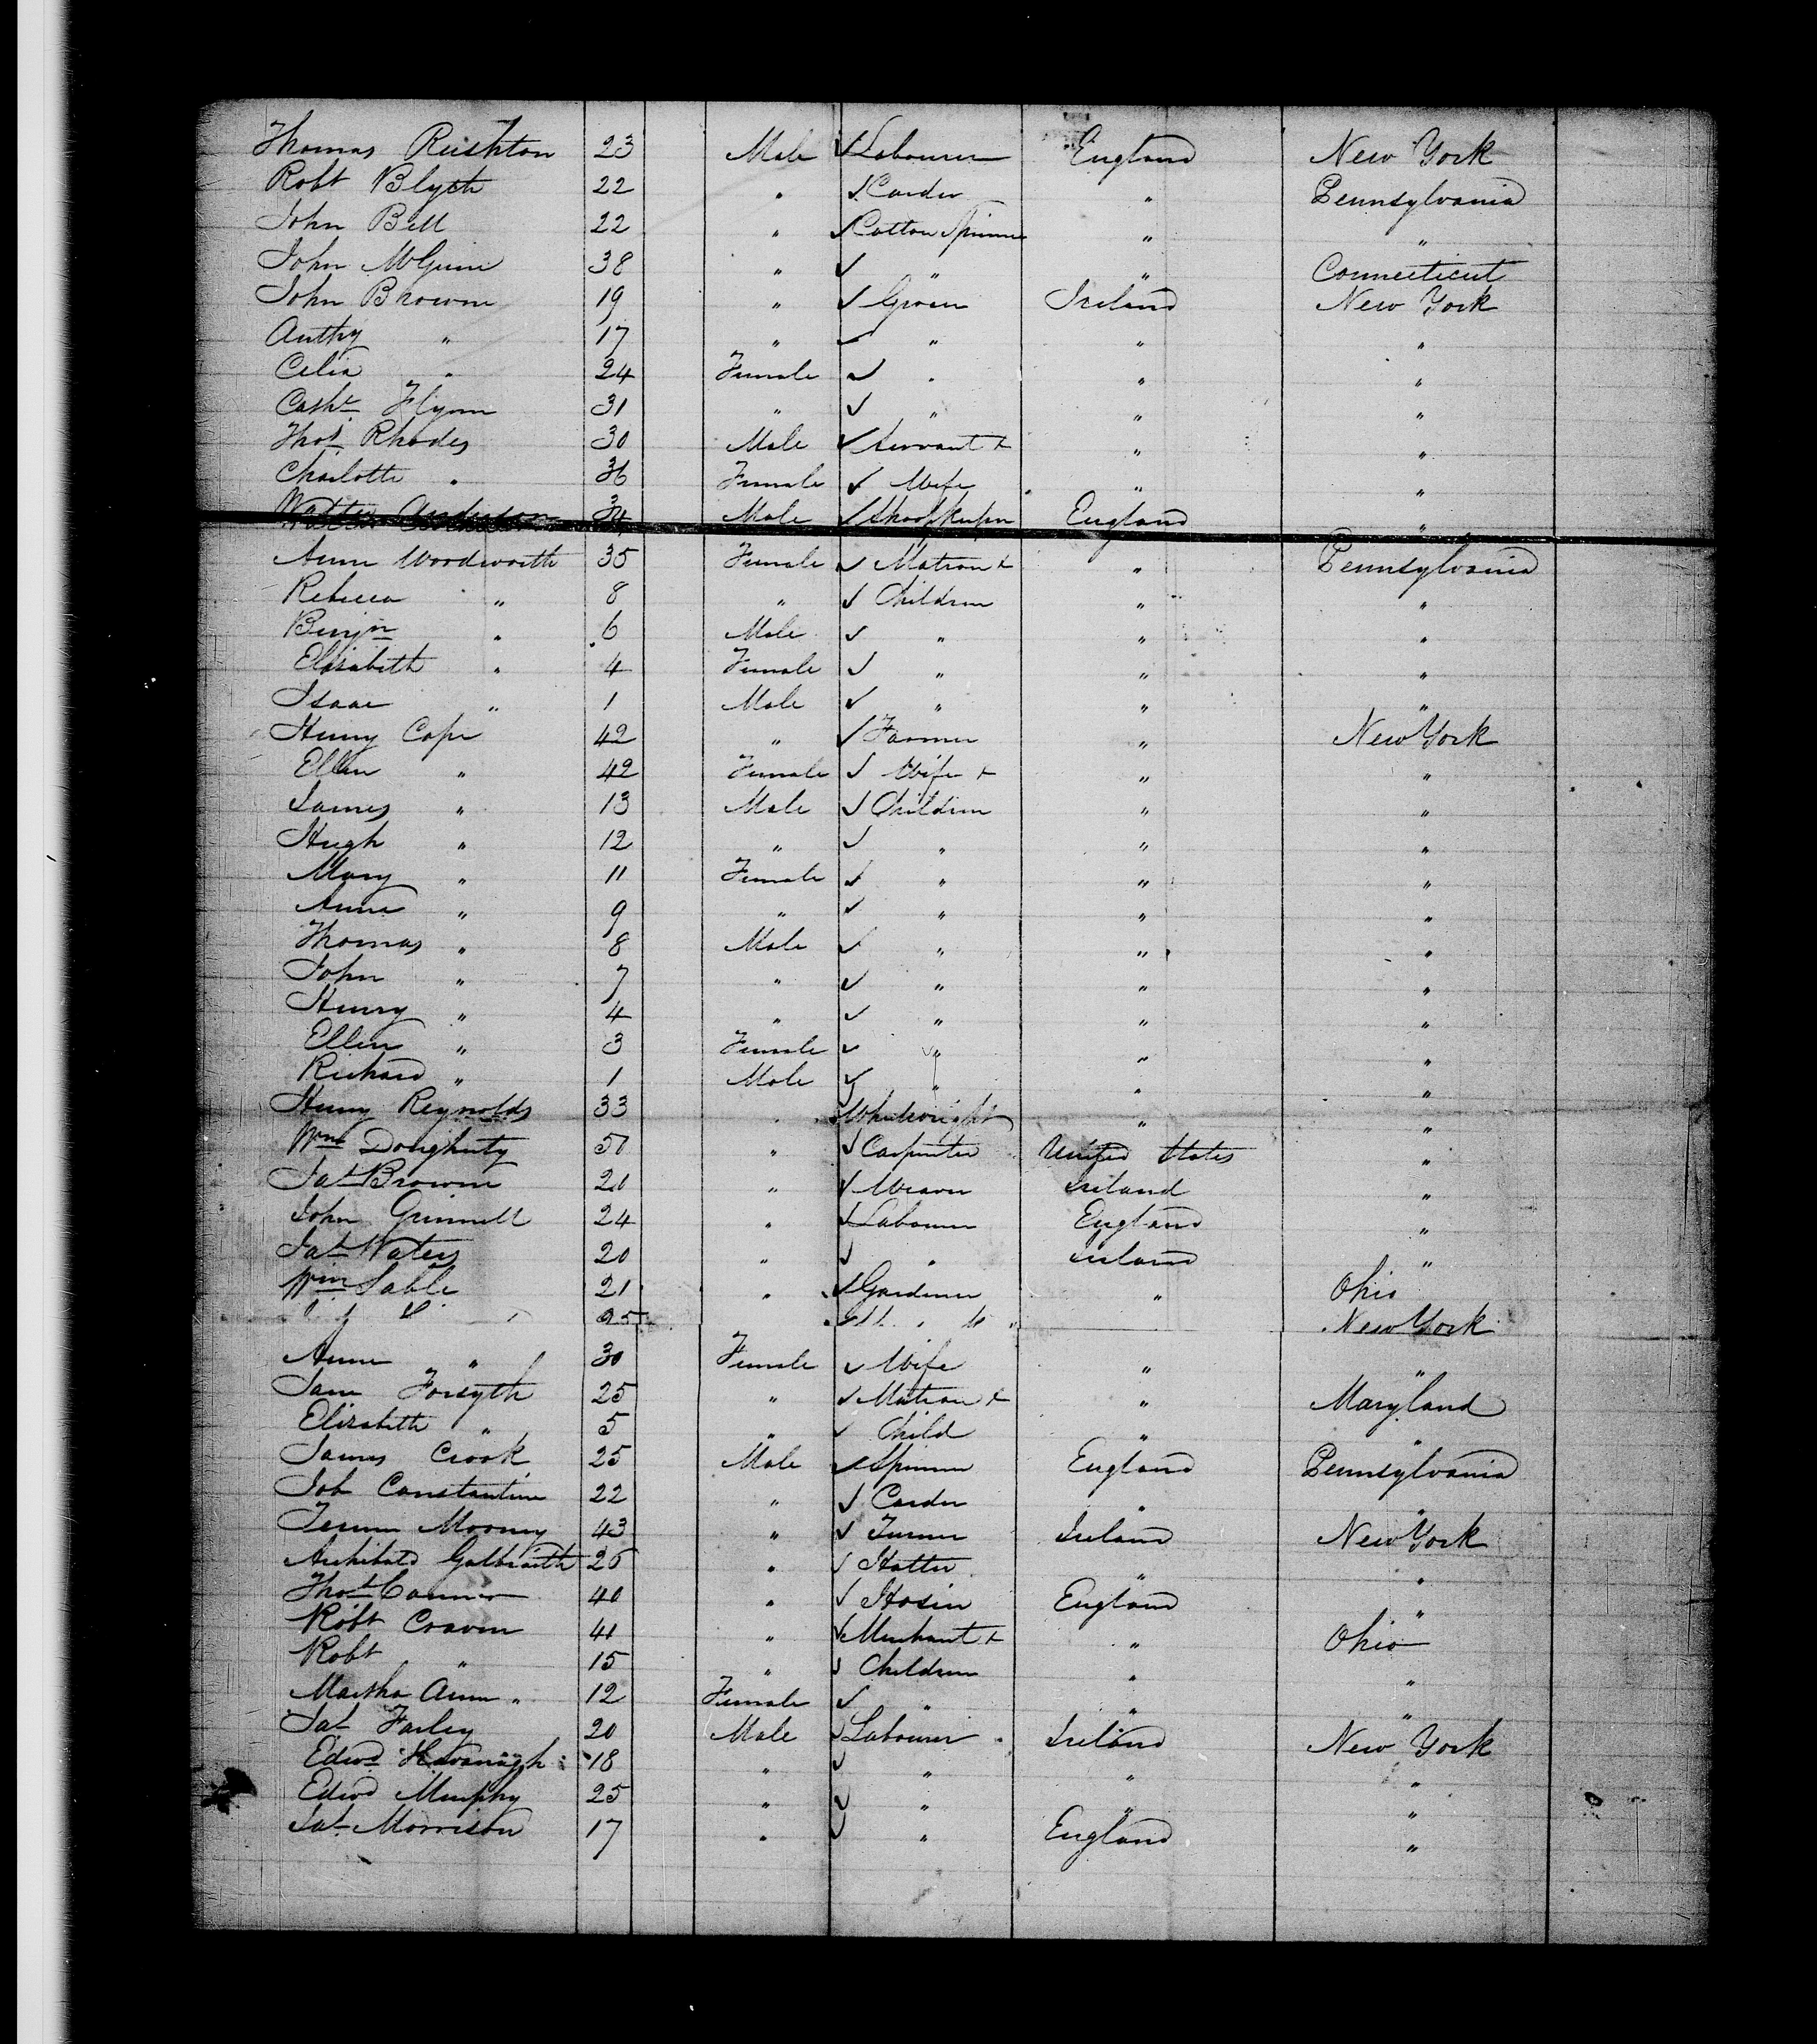 Thomas Rushton 23 Male Labourer England New York
Robt Blyth 22 " Carder " Pennsylvania
John Bell 22 " Cotton Spinner " "
John McGinn 38 " " " Connecticut
John Browne 19 " Grocer Ireland New York
Anthy " 17 " " " "
Celia " 24 Female " " "
Cathe Flynn 31 " " " "
Thos Rhodes 30 Male Servant & " "
Charlotte " 36 Female Wife " "
Walter Anderson 34 Male Shopkeeper England "
Anne Woodworth 35 Female Matron & " Pennsylvania
Rebecca " 8 " Children " "
Benjn " 6 Male " " "
Elizabeth " 4 Female " " "
Isaac " 1 Male " " "
Henry Cope 42 " Farmer " New York
Ellen " 42 Female Wife & " "
James " 13 Male Children " "
Hugh " 12 " " " "
Mary " 11 Female " " "
Anne " 9 " " " "
Thomas " 8 Male " " "
John " 7 " " " "
Henry " 4 " " " "
Ellen " 3 Female " " "
Richard " 1 Male " " "
Henry Reynolds 33 " Wheelwright " "
Wm Dougherty 51 " Carpenter United States "
Jas Browne 20 " Weaver Ireland "
John Grinnell 24 " Labourer England "
Jas Waters 20 " " Ireland "
Wm Sable 21 " Gardener " Ohio
25 New York
Anne " 30 Female Wife " "
Jane Forsyth 25 " Matron & " Maryland
Elizabeth " 5 " Child " "
James Crook 25 Male Spinner England Pennsylvania
Job Constantine 22 " Carder " "
Mooney 43 " Turner Ireland New York
Archibald Galbraith 26 " Hatter " "
Thos Connor 40 " Hosier England "
Robt Craven 41 " Merchant & " Ohio
Robt " 15 " Children " "
Martha Ann " 12 Female " " "
Jas Farley 20 Male Labourer Ireland New York
Edwd Kavanagh 18 " " " "
Edwd Murphy 25 " " " "
Jas Morrison 17 " " England "